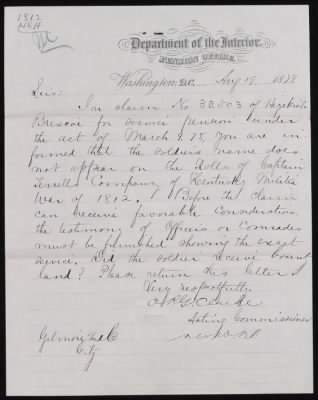 1812
Department of the Interior,
PENSION OFFICE,
Washington, D.C. Aug 19, 1878
Sirs:
In claim No. 32503 of Hezekiah
Briscoe for service pension under
the act of March 9, 78, you are in-
formed that the soldiers name does
not appear on the Rolls of Captain
Company of Kentucky Militia
War of 1812. Before the claim
can receive favorable consideration
the testimony of Officers or Comrades
must be furnished showing the exact
service. Did the soldier receive bounty
land? Please return this letter
Very respectfully
Clarke
Acting Commissioner
Gilmore & Co
City